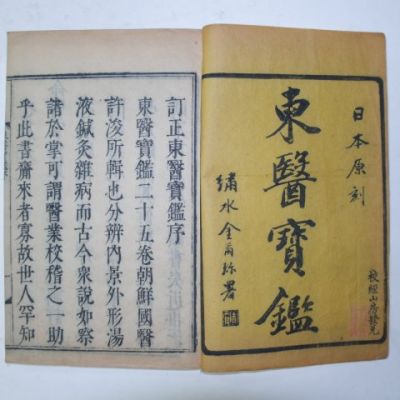 日本原刻
東醫寶鑑
繡水金爾珍署
校經山房發兌
訂正東醫寶鑑序
東醫寶鑑二十五卷朝鮮國醫
許浚所輯也分辨內景外形湯
液鍼灸雜病而古今衆說如察
諸於掌可謂醫業校稽之一助
乎此書齎來者寡故世人罕知